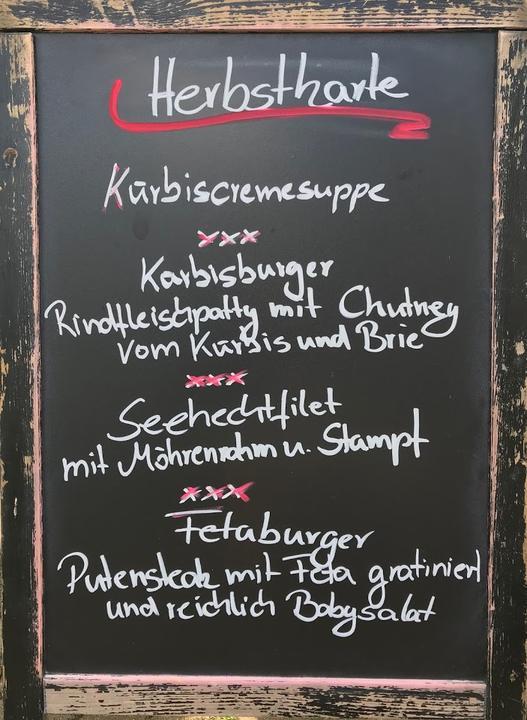 Herbstkarte
Kürbiscremesuppe
xxx
Kürbisburger
Rindfleischpatty mit Chutney
vom Kürbis und Brie
xxx
Seehechtfilet
mit Möhrenrahm u. Stampf
xxx
Fetaburger
Putensteak mit Feta gratiniert
und reichlich Babysalat